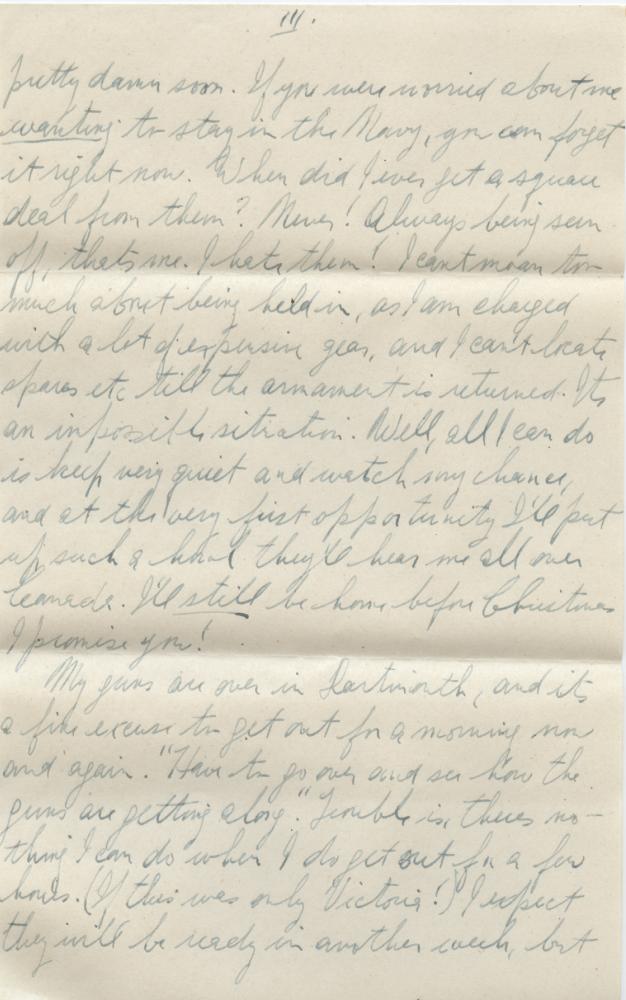 III.
pretty damn soon. If you were worried about me
wanting to stay in the Navy, you can forget
it right now. When did I ever get a square
deal from them? Never! Always being seen
off, thats me. I hate them! I cant moan too
much about being held in, as I am charged
with a lot of expensive gear, and I can't locate
spares etc till the armament is returned. Its
an impossible situation. Well, all I can do
is keep very quiet and watch my chance,
and at the very first opportunity I'll put
up such a howl they'll hear me all over
Canada. I'll still be home before Christmas
I promise you!
My guns are over in Dartmouth, and its
a fine excuse to get out for a morning now
and again. "Have to go over and see how the
guns are getting along." Trouble is, theres no-
thing I can do when I do get out for a few
hours. (If this was only Victoria!) I expect
they will be ready in another week, but